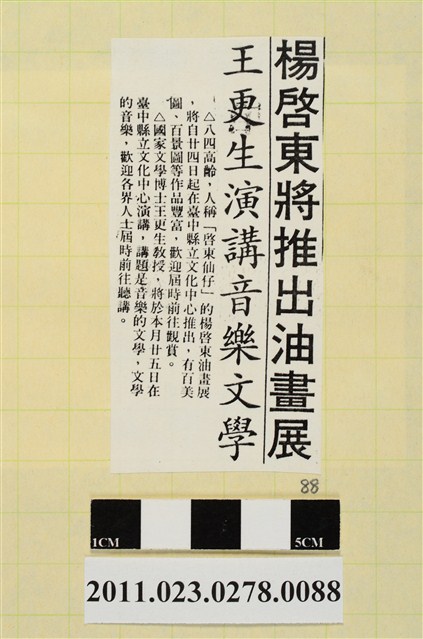 楊啓東將推出油畫展
王更生演講音樂文學
△八四高齡，人稱「啓東仙仔」的楊啓東油畫展
，將自廿四日起在臺中縣立文化中心推出，有百美
圖、百景圖等作品豐富，歡迎屆時前往觀賞。
△國家文學博士王更生教授，將於本月廿五日在
臺中縣立文化中心演講，講題是音樂的文學，文學
的音樂，歡迎各界人士屆時前往聽講。
88
1CM 5CM
2011.023.0278.0088